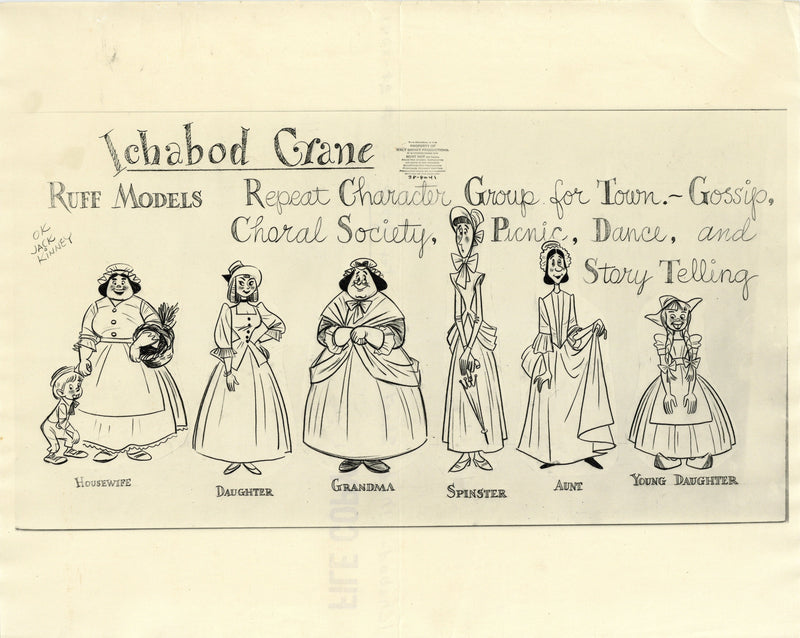 Ichabod Crane
PROPERTY OF
WALT DISNEY PRODUCTIONS
RUFF MODELS
Repeat Character Group for Town.- Gossip,
Choral Society, Picnic, Dance, and
Story Telling
OK
JACK
KINNEY
HOUSEWIFE
DAUGHTER
GRANDMA
SPINSTER
AUNT
YOUNG DAUGHTER
FILE COPY